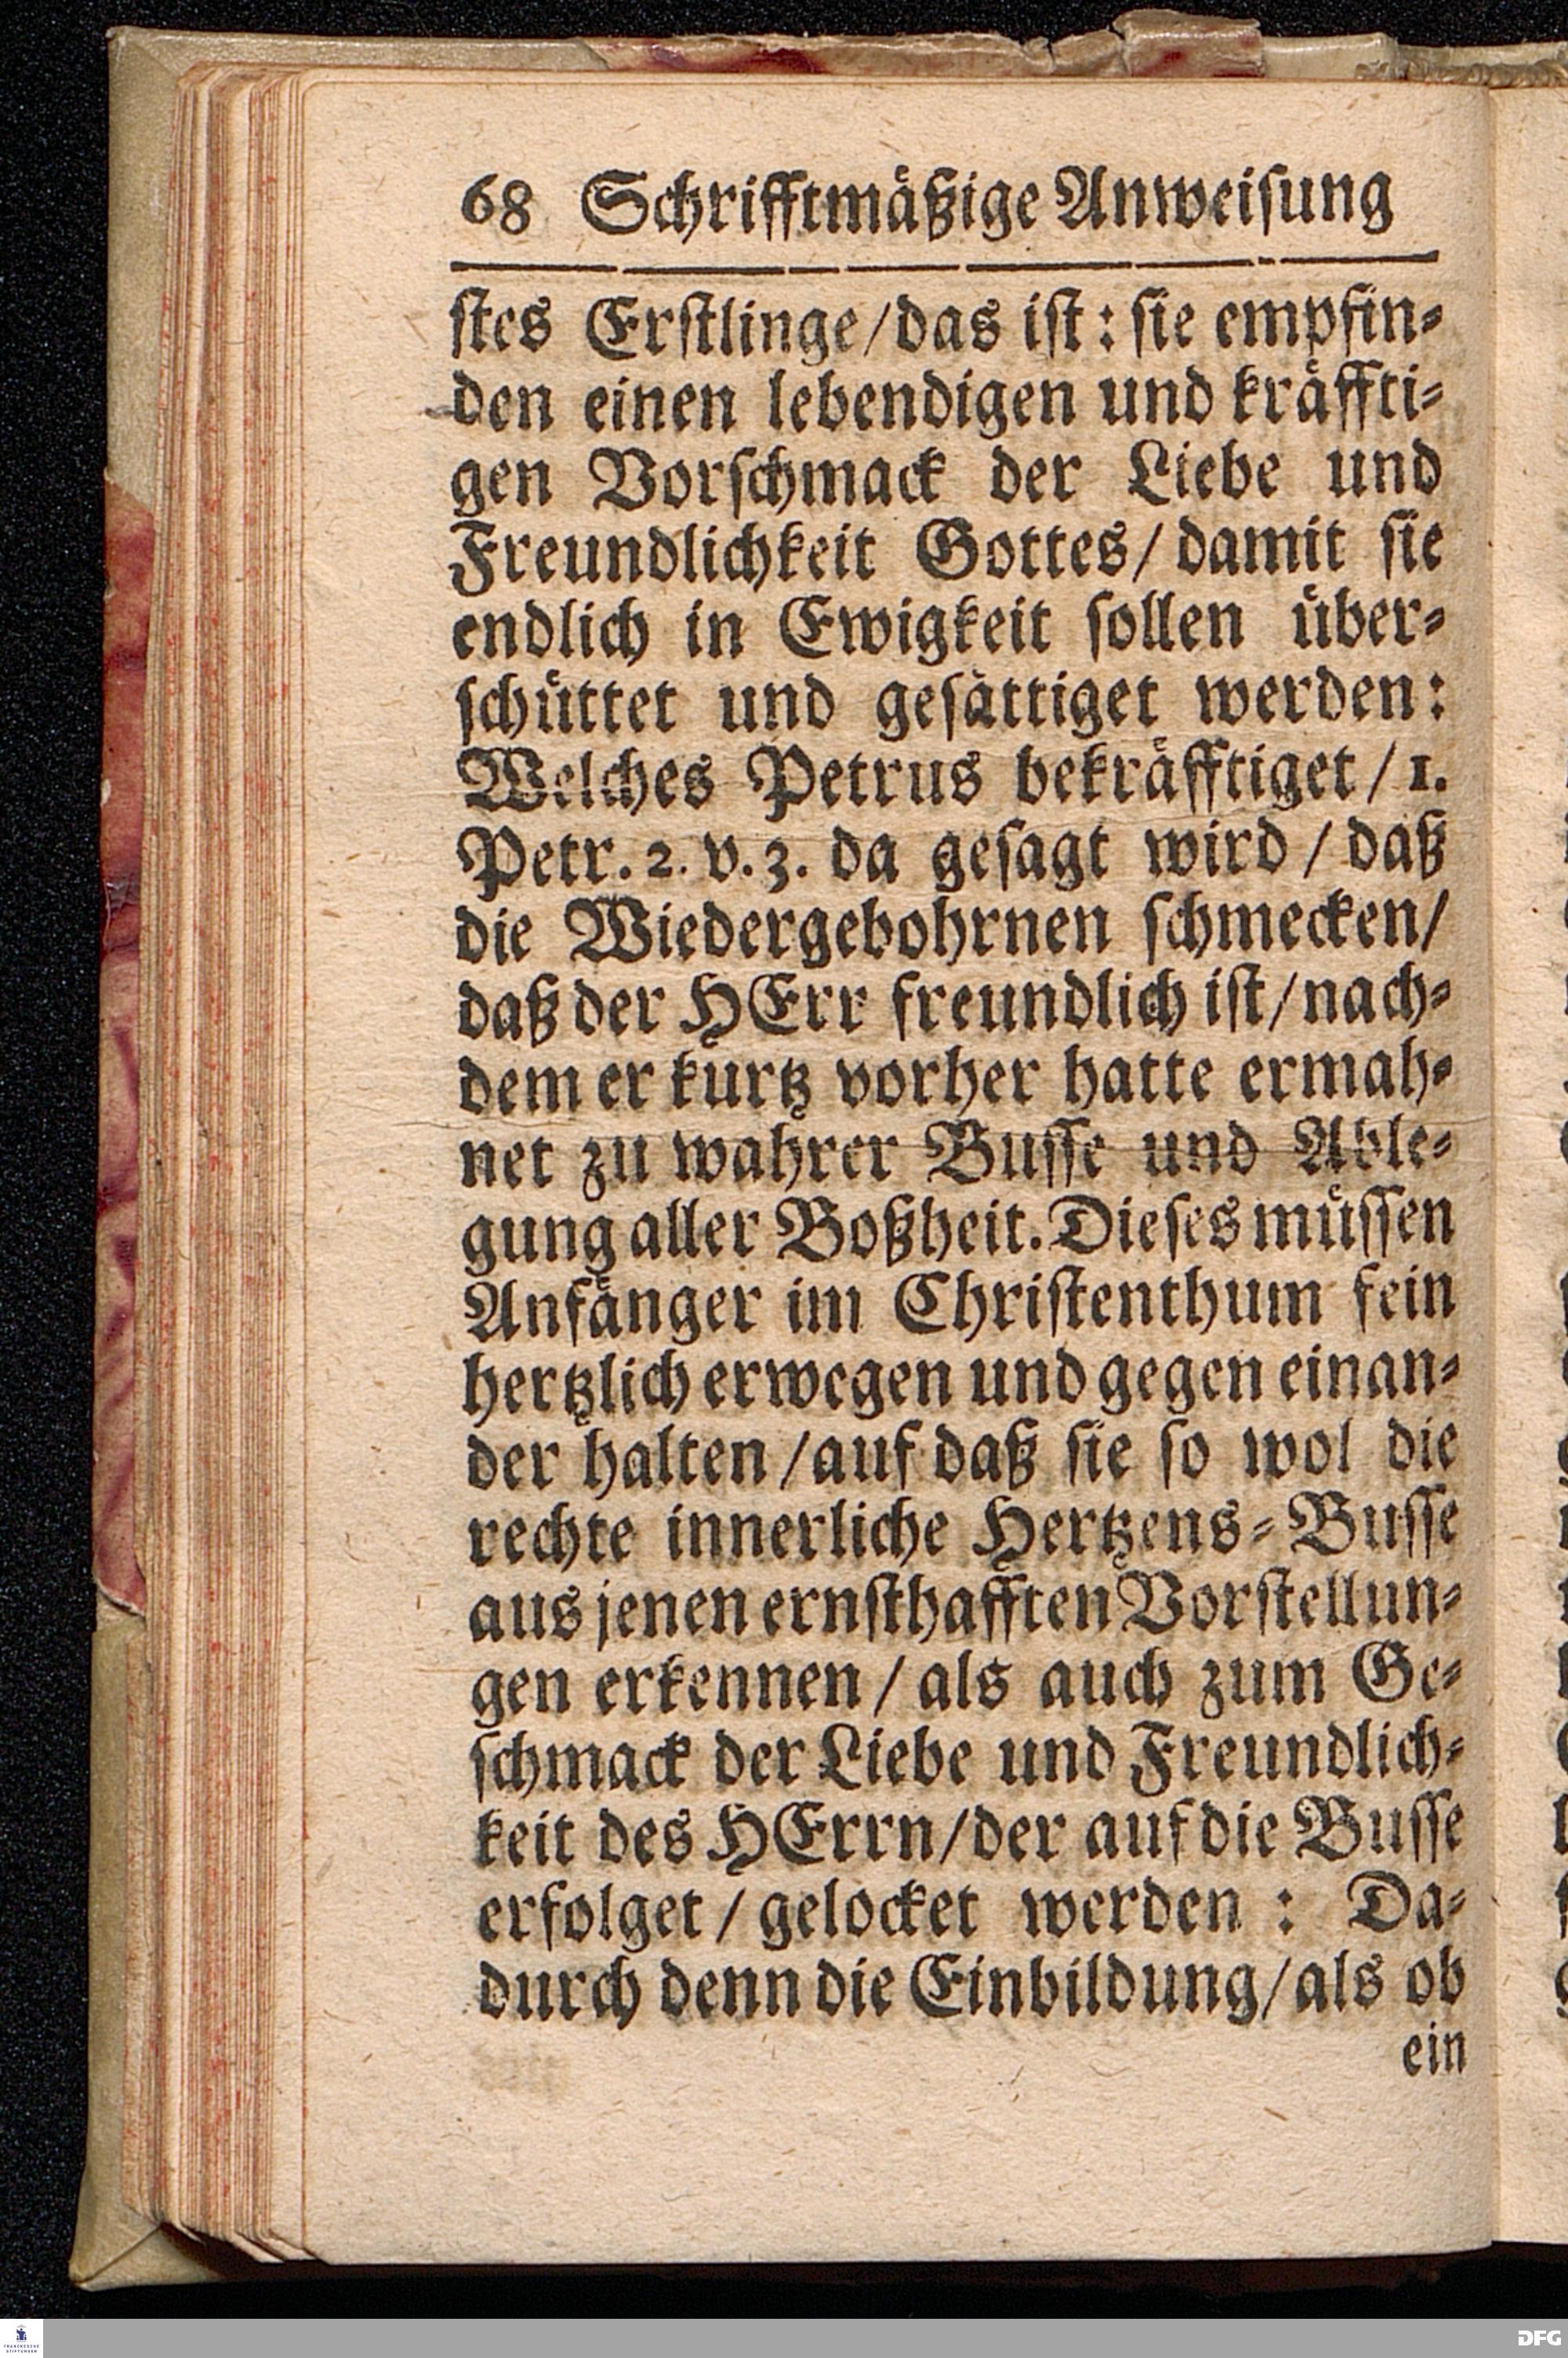 68 Schrifftmäßige Anweisung
stes Erstlinge/das ist: sie empfin-
den einen lebendigen und kräffti-
gen Vorschmack der Liebe und
Freundlichkeit Gottes/ damit sie
endlich in Ewigkeit sollen über-
schüttet und gesättiget werden:
Welches Petrus bekräfftiget / 1.
Petr. 2. v. 3. da gesagt wird / daß
die Wiedergebohrnen schmecken/
daß der HErr freundlich ist/nach-
dem er kurtz vorher hatte ermah-
net zu wahrer Busse und Able-
gung aller Boßheit. Dieses müssen
Anfänger im Christenthum fein
hertzlich erwegen und gegen einan-
der halten /auf daß sie so wol die
rechte innerliche Hertzens-Busse
aus jenen ernsthafften Vorstellun-
gen erkennen / als auch zum Ge-
schmack der Liebe und Freundlich-
keit des HErrn/der auf die Busse
erfolget / gelocket werden : Da-
durch denn die Einbildung/als ob
ein
FRANCKESCHE
STIFTUNGEN
DFG